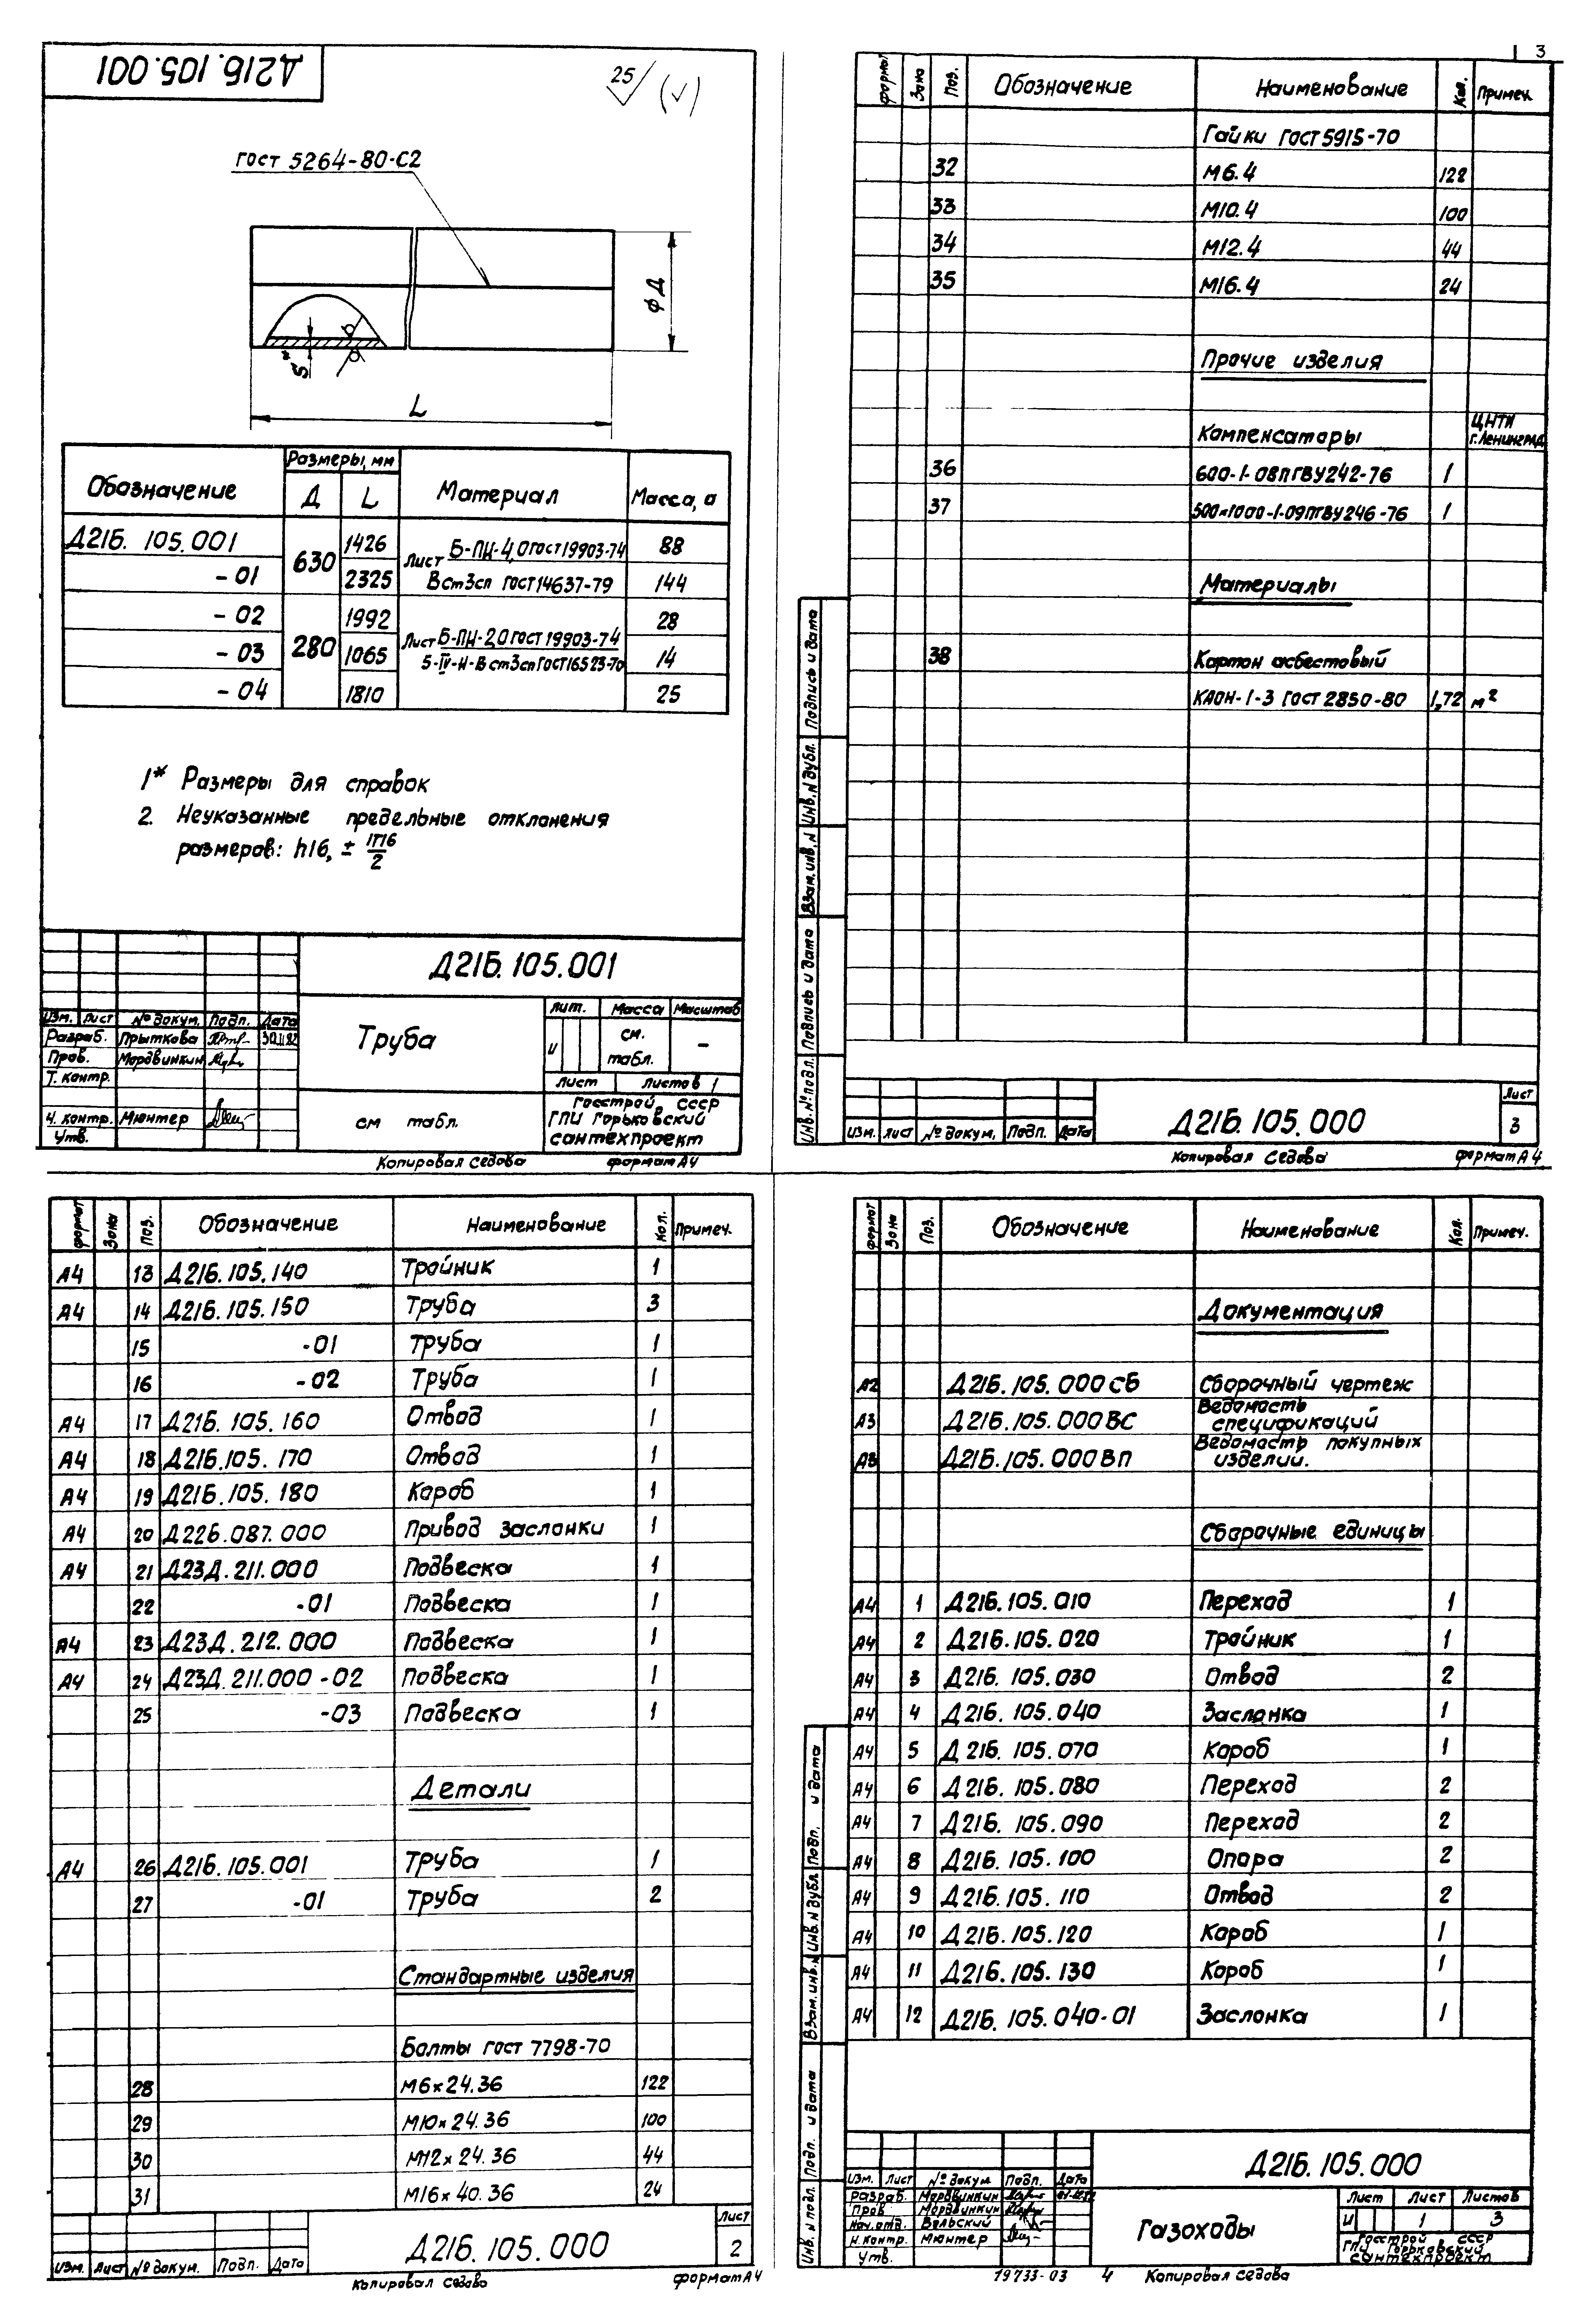 Д21Б.105.001
25
ГОСТ 5264-80-С2
ϕД
S*
L
Обозначение Размеры, мм Материал Масса, а
Д L
Д21Б. 105.001 630 1426 Лист Б-ПН-4,0 ГОСТ 19903-74 88
-01 2325 ВСт3сп ГОСТ 14637-79 144
-02 280 1992 28
-03 1065 Лист Б-ПН-2,0 ГОСТ 19903-74 14
5-IV-Н-ВСт3сп ГОСТ 16523-70
-04 1810 25
1* Размеры для справок
2. Неуказанные предельные отклонения
размеров: h16, ± IT16/2
Д21Б.105.001
Изм. Лист № докум. Подп. Дата
Разраб. Прыткова
Пров. Мордвинкин
Т. контр.
Н. контр. Мюнтер
Утв.
Труба
см табл.
Лит. Масса Масштаб
и см. табл. –
Лист Листов 1
Госстрой СССР
ГПИ Горьковский
сантехпроект
Копировал Седова формат А4
3
формат Зона Поз. Обозначение Наименование Кол. Примеч.
Гайки ГОСТ 5915-70
32 М6.4 122
33 М10.4 100
34 М12.4 44
35 М16.4 24
Прочие изделия
Компенсаторы ЦНТИ г. Ленинград
36 600-1-08ПГВУ242-76 1
37 500×1000-1-09ПГВУ246-76 1
Материалы
38 Картон асбестовый
КАОН-1-3 ГОСТ 2850-80 1,72 м²
Подпись и дата
Инв. N дубл.
Взам. инв. N
Подпись и дата
Инв. № подл.
Изм. Лист № докум. Подп. Дата
Д21Б.105.000
Лист
3
Копировал Седова формат А4
формат Зона Поз. Обозначение Наименование Кол. Примеч.
А4 13 Д21Б.105.140 Тройник 1
А4 14 Д21Б.105.150 Труба 3
15 -01 Труба 1
16 -02 Труба 1
А4 17 Д21Б.105.160 Отвод 1
А4 18 Д21Б.105.170 Отвод 1
А4 19 Д21Б.105.180 Короб 1
А4 20 Д22Б.087.000 Привод заслонки 1
А4 21 Д23Д.211.000 Подвеска 1
22 -01 Подвеска 1
А4 23 Д23Д.212.000 Подвеска 1
А4 24 Д23Д.211.000-02 Подвеска 1
25 -03 Подвеска 1
Детали
А4 26 Д21Б.105.001 Труба 1
27 -01 Труба 2
Стандартные изделия
Болты ГОСТ 7798-70
28 М6×24.36 122
29 М10×24.36 100
30 М12×24.36 44
31 М16×40.36 24
Изм. Лист № докум. Подп. Дата
Д21Б.105.000
Лист
2
Копировал Седова формат А4
формат Зона Поз. Обозначение Наименование Кол. Примеч.
Документация
А2 Д21Б.105.000СБ Сборочный чертеж
А3 Д21Б.105.000ВС Ведомость спецификаций
А3 Д21Б.105.000ВП Ведомость покупных изделий.
Сборочные единицы
А4 1 Д21Б.105.010 Переход 1
А4 2 Д21Б.105.020 Тройник 1
А4 3 Д21Б.105.030 Отвод 2
А4 4 Д21Б.105.040 Заслонка 1
А4 5 Д21Б.105.070 Короб 1
А4 6 Д21Б.105.080 Переход 2
А4 7 Д21Б.105.090 Переход 2
А4 8 Д21Б.105.100 Опора 2
А4 9 Д21Б.105.110 Отвод 2
А4 10 Д21Б.105.120 Короб 1
А4 11 Д21Б.105.130 Короб 1
А4 12 Д21Б.105.040-01 Заслонка 1
Подп. и дата
Инв. N дубл.
Взам. инв. N
Подп. и дата
Инв. N подл.
Д21Б.105.000
Изм. Лист № докум Подп. Дата
Разраб. Мордвинкин
Пров Мордвинкин
Нач. отд. Вольский
Н. контр. Мюнтер
Утв.
Газоходы
Лист Лист Листов
и 1 3
Госстрой СССР
ГПИ Горьковский
сантехпроект
19733-03 4 Копировал Седова